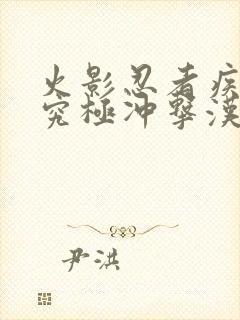 火影忍者疾
究極冲擊漢
尹洪